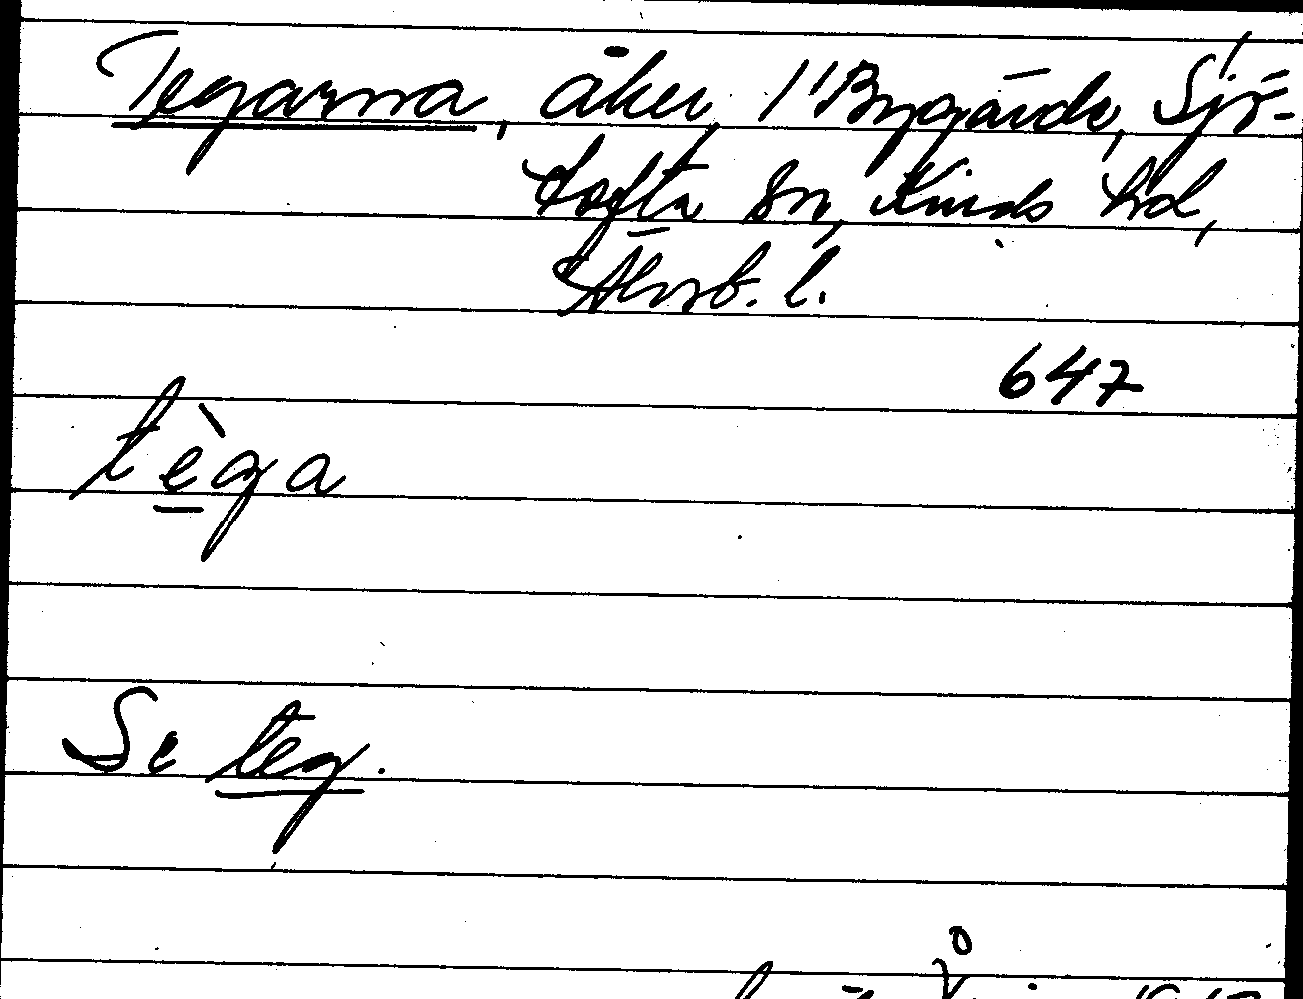 Tegarna, åker, 1/1 Bygärde, Sjö-
tofta sn, Kinds hd,
Älvsb. l.
647
tèga
Se teg.